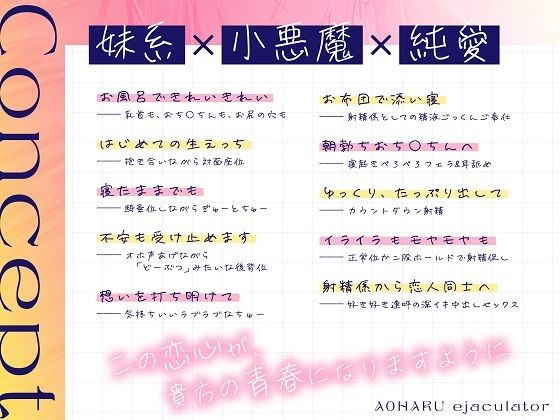 Concept
妹系×小悪魔×純愛
お風呂できれいきれい
乳首も、おち〇ちんも、お尻の穴も
はじめての生えっち
抱き合いながら対面座位
寝たままでも
騎乗位しながらぎゅーとちゅー
不安も受け止めます
オホ声あげながら
「どーぶつ」みたいな後背位
想いを打ち明けて
気持ちいいラブラブなちゅー
お布団で添い寝
射精係としての精液ごっくんご奉仕
朝勃ちおち〇ちんへ
寝起きぺろぺろフェラ&耳舐め
ゆっくり、たっぷり出して
カウントダウン射精
イライラもモヤモヤも
正常位から足ホールドで射精促し
射精係から恋人同士へ
好き好き連呼の深イキ中出しセックス
この恋心が、
貴方の青春になりますように
AOHARU ejaculator